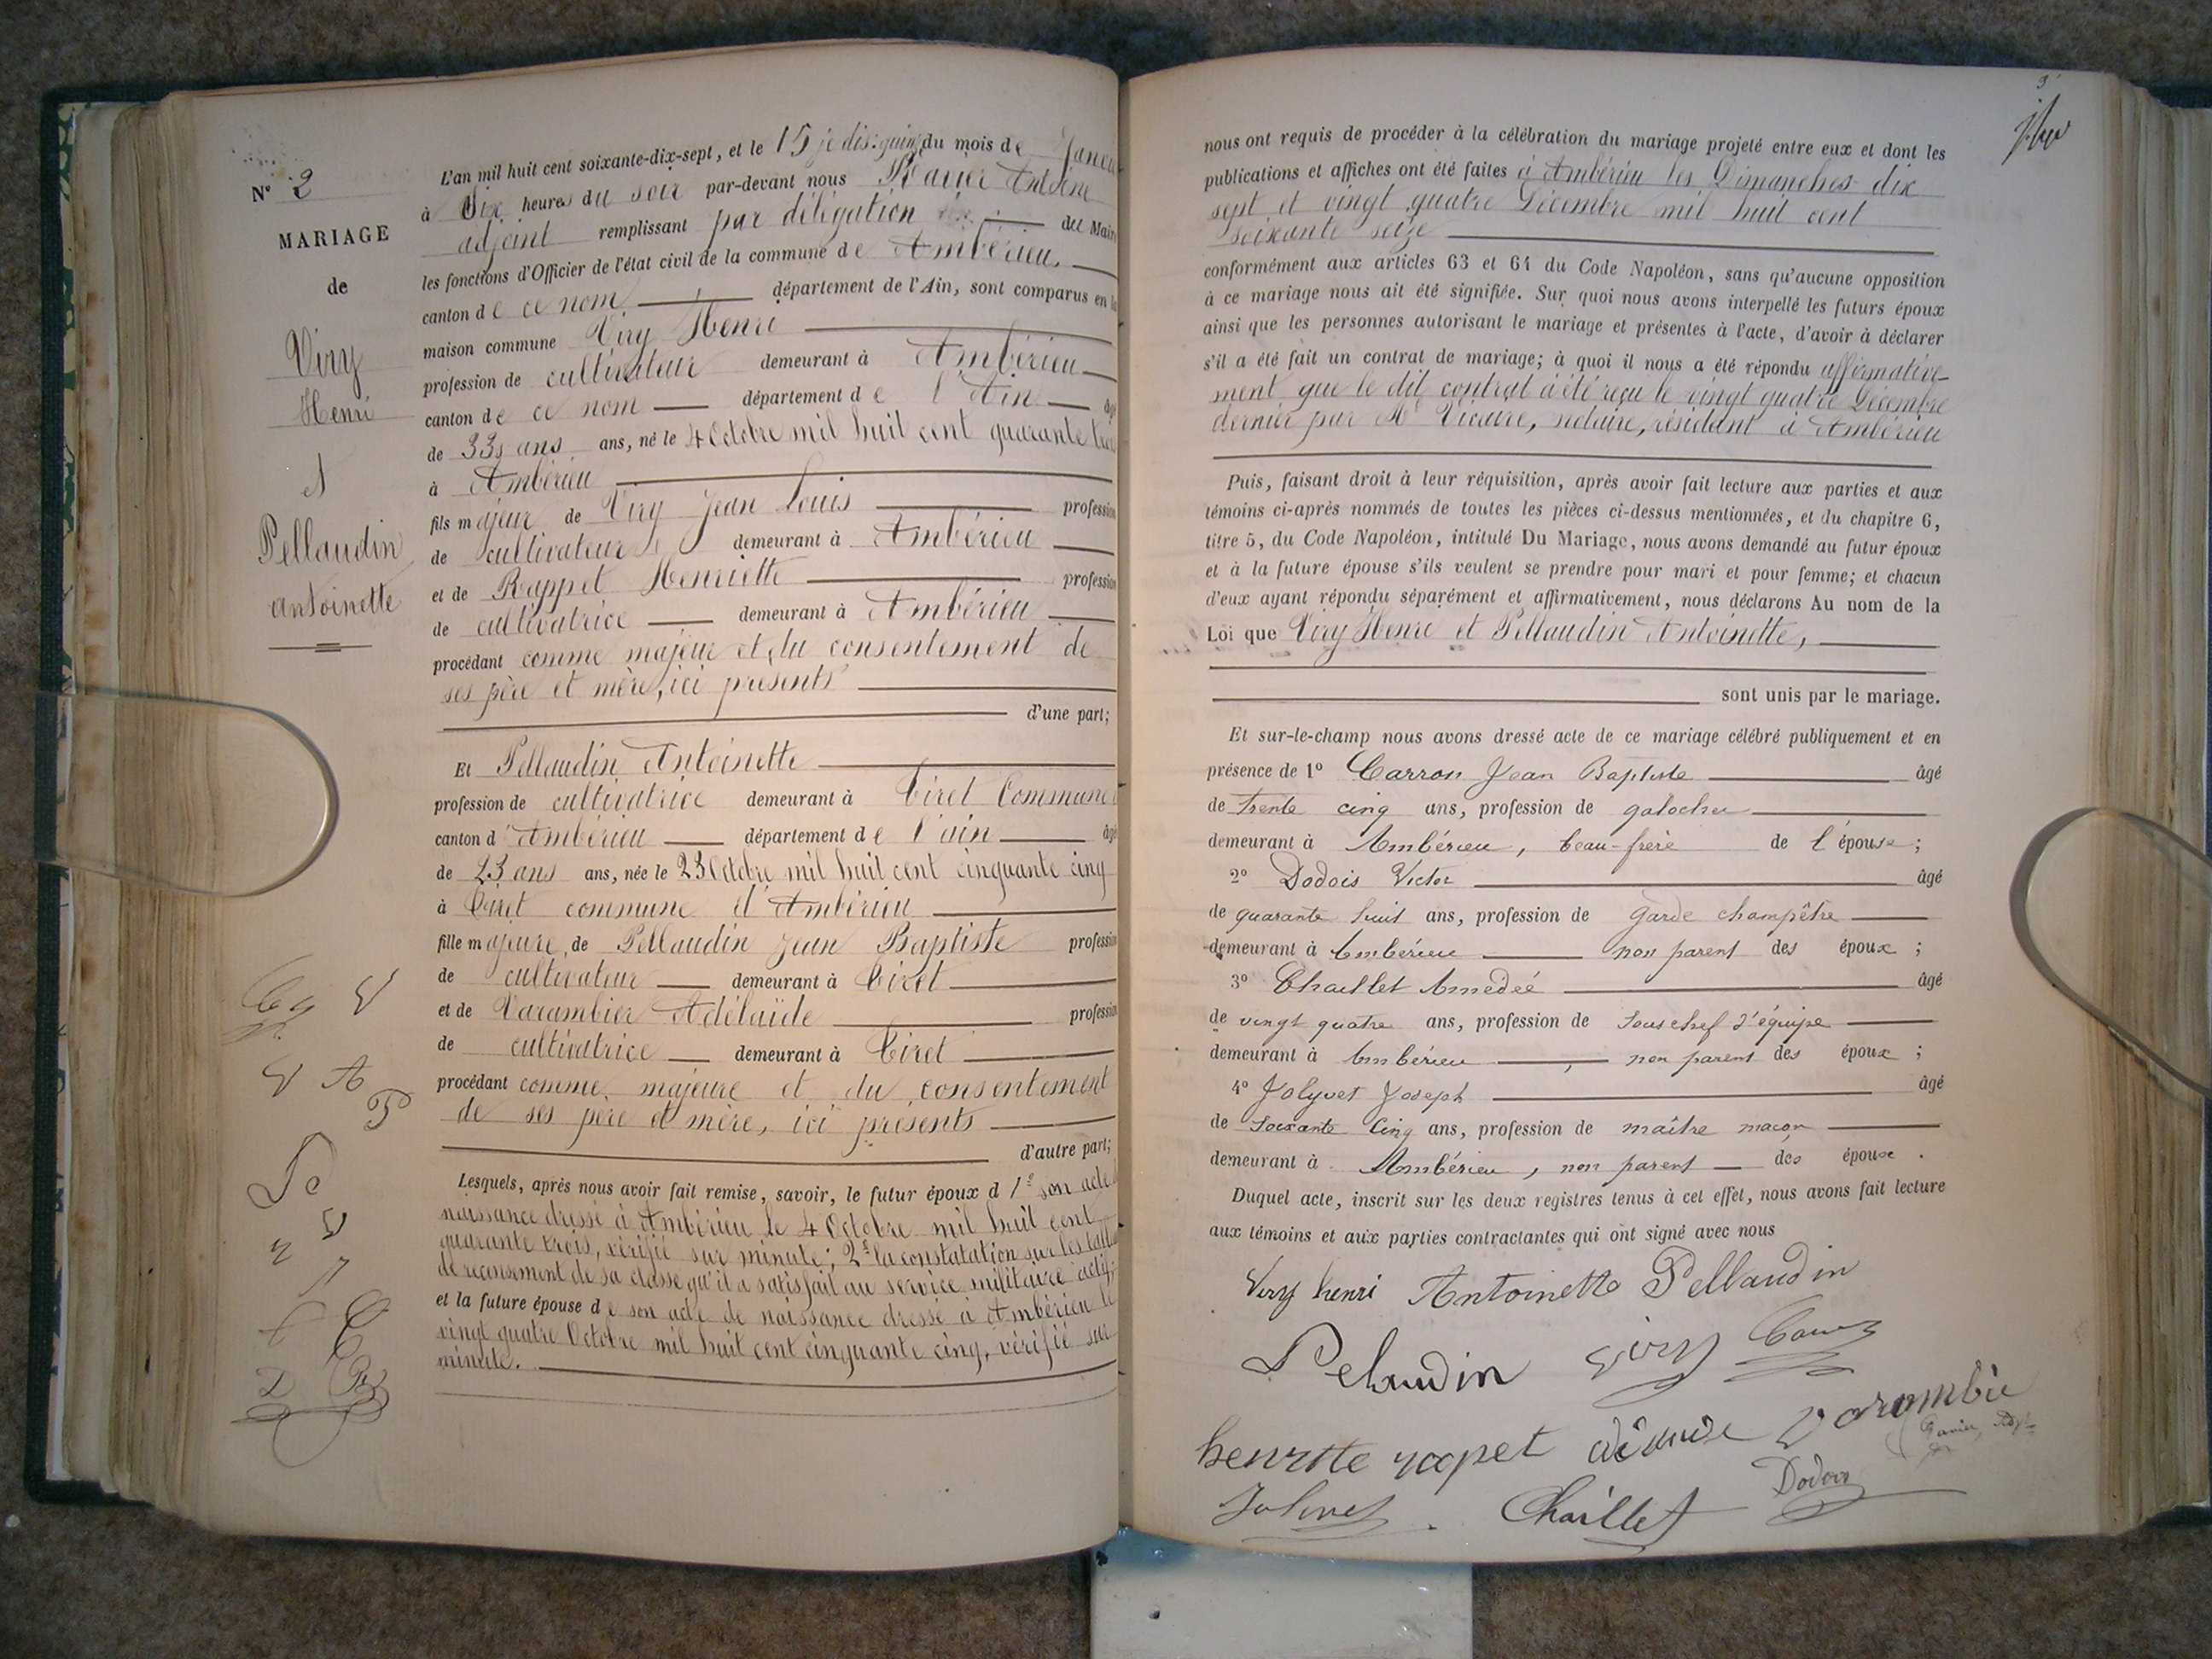 N° 2
MARIAGE
de
Viry
Henri
et
Pellaudin
Antoinette
L'an mil huit cent soixante-dix-sept, et le 15 je dis: quinze du mois de Janvi
à Six heures du soir par-devant nous Ravier Antoine
adjoint remplissant par délégation du Maire
les fonctions d'Officier de l'état civil de la commune de Ambérieu,
canton de ce nom département de l'Ain, sont comparus en la
maison commune Viry Henri
profession de cultivateur demeurant à Ambérieu
canton de ce nom département de l'Ain âgé
de 33 ans ans, né le 4 Octobre mil huit cent quarante trois
à Ambérieu
fils majeur de Viry Jean Louis profession
de cultivateur demeurant à Ambérieu
et de Rappet Henriette profession
de cultivatrice demeurant à Ambérieu
procédant comme majeur et du consentement de
ses père et mère, ici présents
d'une part;
Et Pellaudin Antoinette
profession de cultivatrice demeurant à Tiret Commune
canton d'Ambérieu département de l'ain âgé
de 23 ans ans, née le 23 Octobre mil huit cent cinquante cinq
à Tiret commune d'Ambérieu
fille majeure, de Pellaudin Jean Baptiste profession
de cultivateur demeurant à Tiret
et de Varambier Adélaïde profession
de cultivatrice demeurant à Tiret
procédant comme majeure et du consentement
de ses père et mère, ici présents
d'autre part;
Lesquels, après nous avoir fait remise, savoir, le futur époux d 1° son acte
naissance dressé à Ambérieu le 4 Octobre mil huit cent
quarante trois, vérifié sur minute; 2° la constatation sur les tabl
de recensement de sa classe qu'il a satisfait au service militaire actif;
et la future épouse de son acte de naissance dressé à Ambérieu le
vingt quatre Octobre mil huit cent cinquante cinq, vérifié sur
minute.
nous ont requis de procéder à la célébration du mariage projeté entre eux et dont les
publications et affiches ont été faites à Ambérieu les Dimanches dix
sept et vingt quatre Décembre mil huit cent
soixante seize
conformément aux articles 63 et 64 du Code Napoléon, sans qu'aucune opposition
à ce mariage nous ait été signifiée. Sur quoi nous avons interpellé les futurs époux
ainsi que les personnes autorisant le mariage et présentes à l'acte, d'avoir à déclarer
s'il a été fait un contrat de mariage; à quoi il nous a été répondu affirmative-
ment que le dit contrat a été reçu le vingt quatre Décembre
dernier par Me Vicaire, notaire, résidant à Ambérieu
Puis, faisant droit à leur réquisition, après avoir fait lecture aux parties et aux
témoins ci-après nommés de toutes les pièces ci-dessus mentionnées, et du chapitre 6,
titre 5, du Code Napoléon, intitulé Du Mariage, nous avons demandé au futur époux
et à la future épouse s'ils veulent se prendre pour mari et pour femme; et chacun
d'eux ayant répondu séparément et affirmativement, nous déclarons Au nom de la
Loi que Viry Henri et Pellaudin Antoinette,
sont unis par le mariage.
Et sur-le-champ nous avons dressé acte de ce mariage célébré publiquement et en
présence de 1° Carron Jean Baptiste âgé
de Trente cinq ans, profession de galocher
demeurant à Ambérieu, beau-frère de l'épouse;
2° Dodois Victor âgé
de quarante huit ans, profession de garde champêtre
demeurant à Ambérieu non parent des époux;
3° Chaillet Amédéé âgé
de vingt quatre ans, profession de Sous chef d'équipe
demeurant à Ambérieu, non parent des époux;
4° Jolyvet Joseph âgé
de Soixante Cinq ans, profession de maître maçon
demeurant à Ambérieu, non parent des époux.
Duquel acte, inscrit sur les deux registres tenus à cet effet, nous avons fait lecture
aux témoins et aux parties contractantes qui ont signé avec nous
Viry henri Antoinette Pellaudin
Pelaudin Viry Carron
henrite rapet Varambie
Dodois
Chaillet